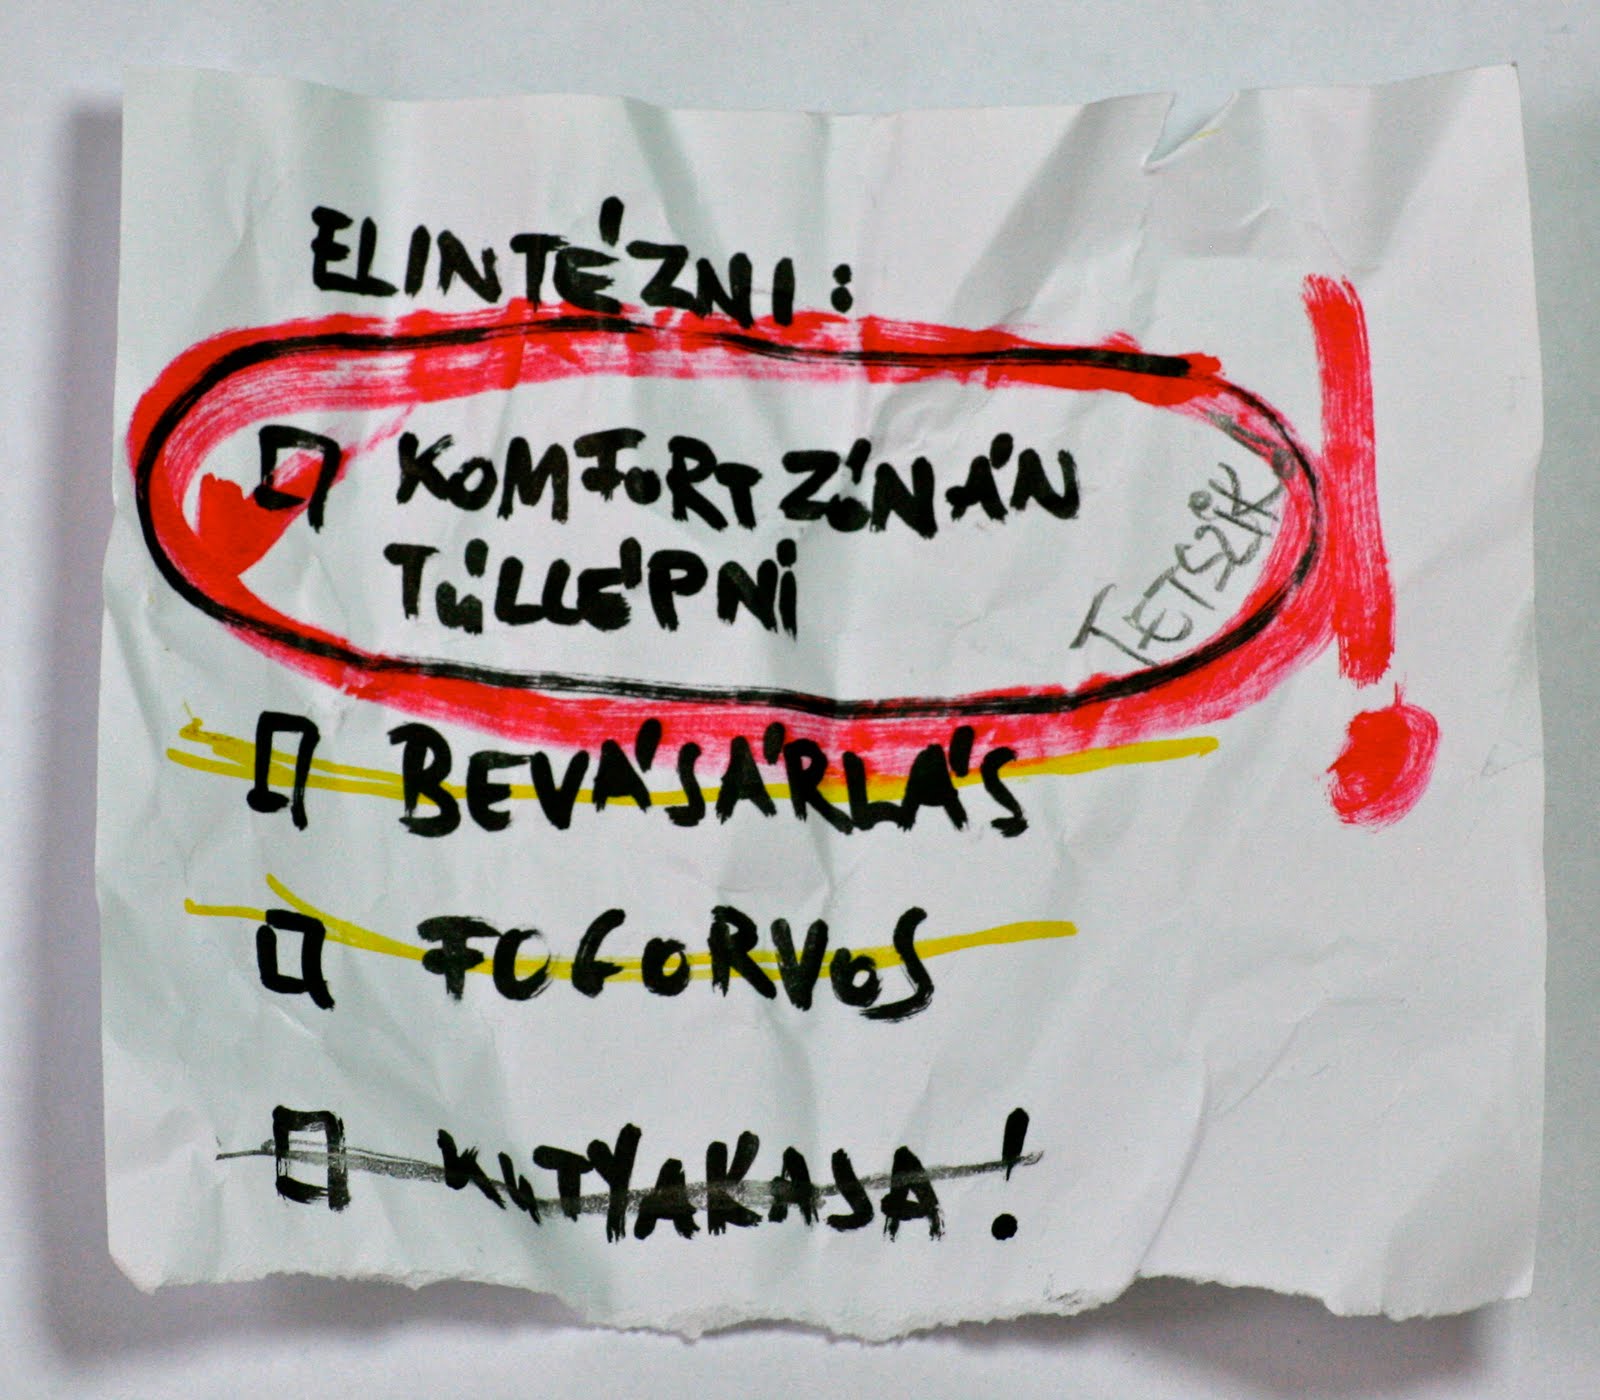 ELINTÉZNI:
KOMFORTZÓNÁN
TÚLLÉPNI
TETSZIK
BEVÁSÁRLÁS
FOGORVOS
KUTYAKAJA!